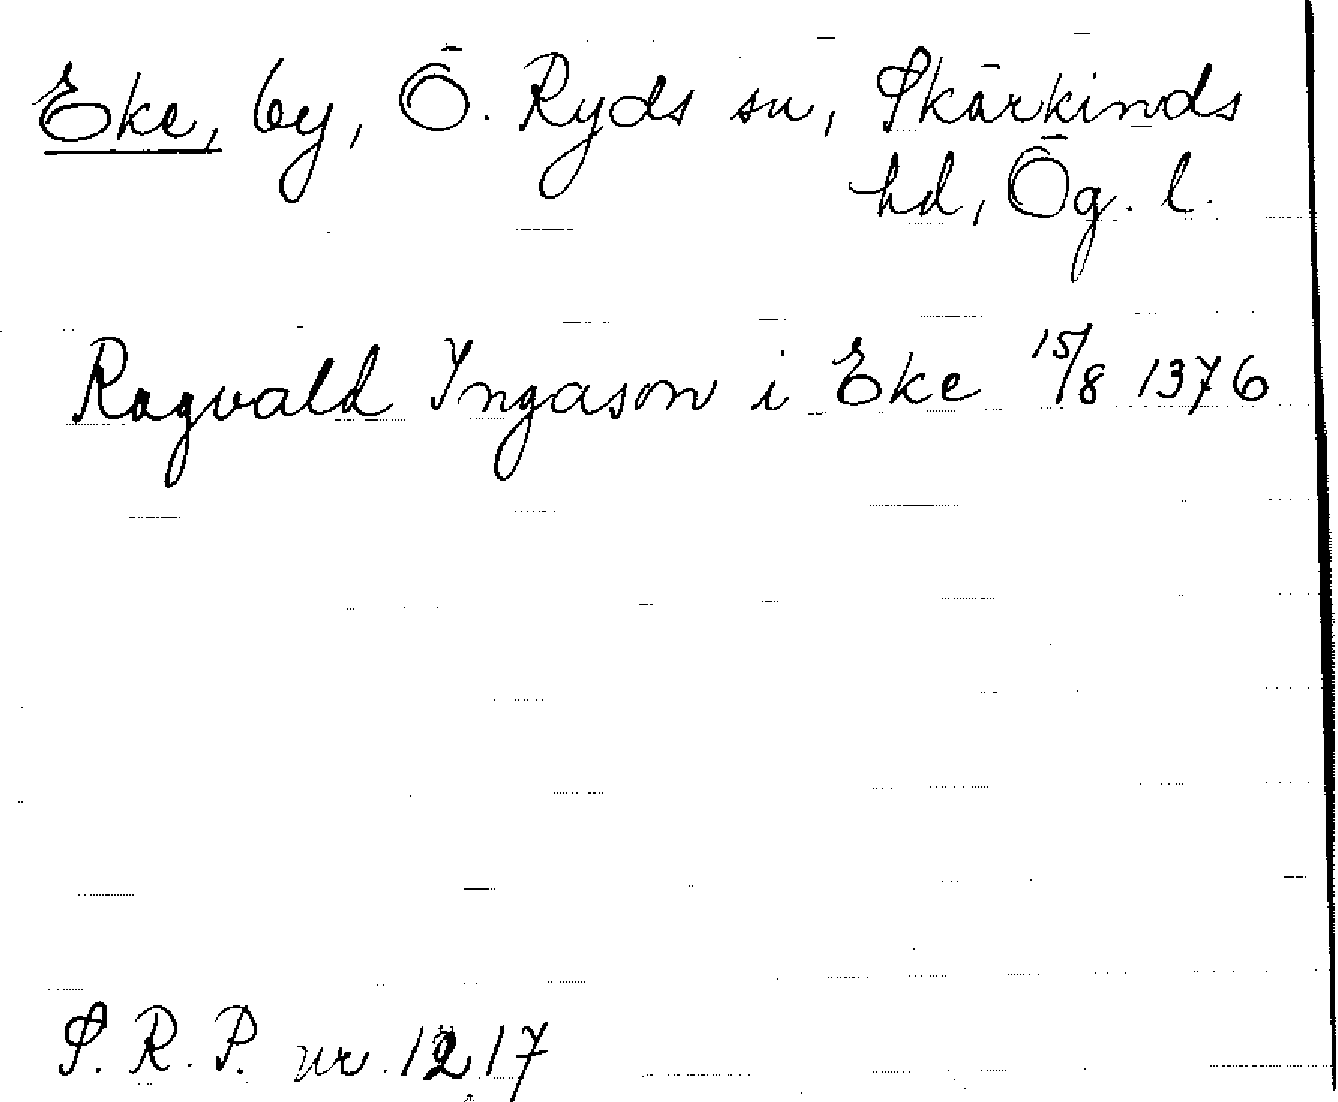 Eke, by, Ö. Ryds sn, Skärkinds
hd, Ög. l.
Ragvald Yngason i Eke 15/8 1376
S. R. P. nr. 1217